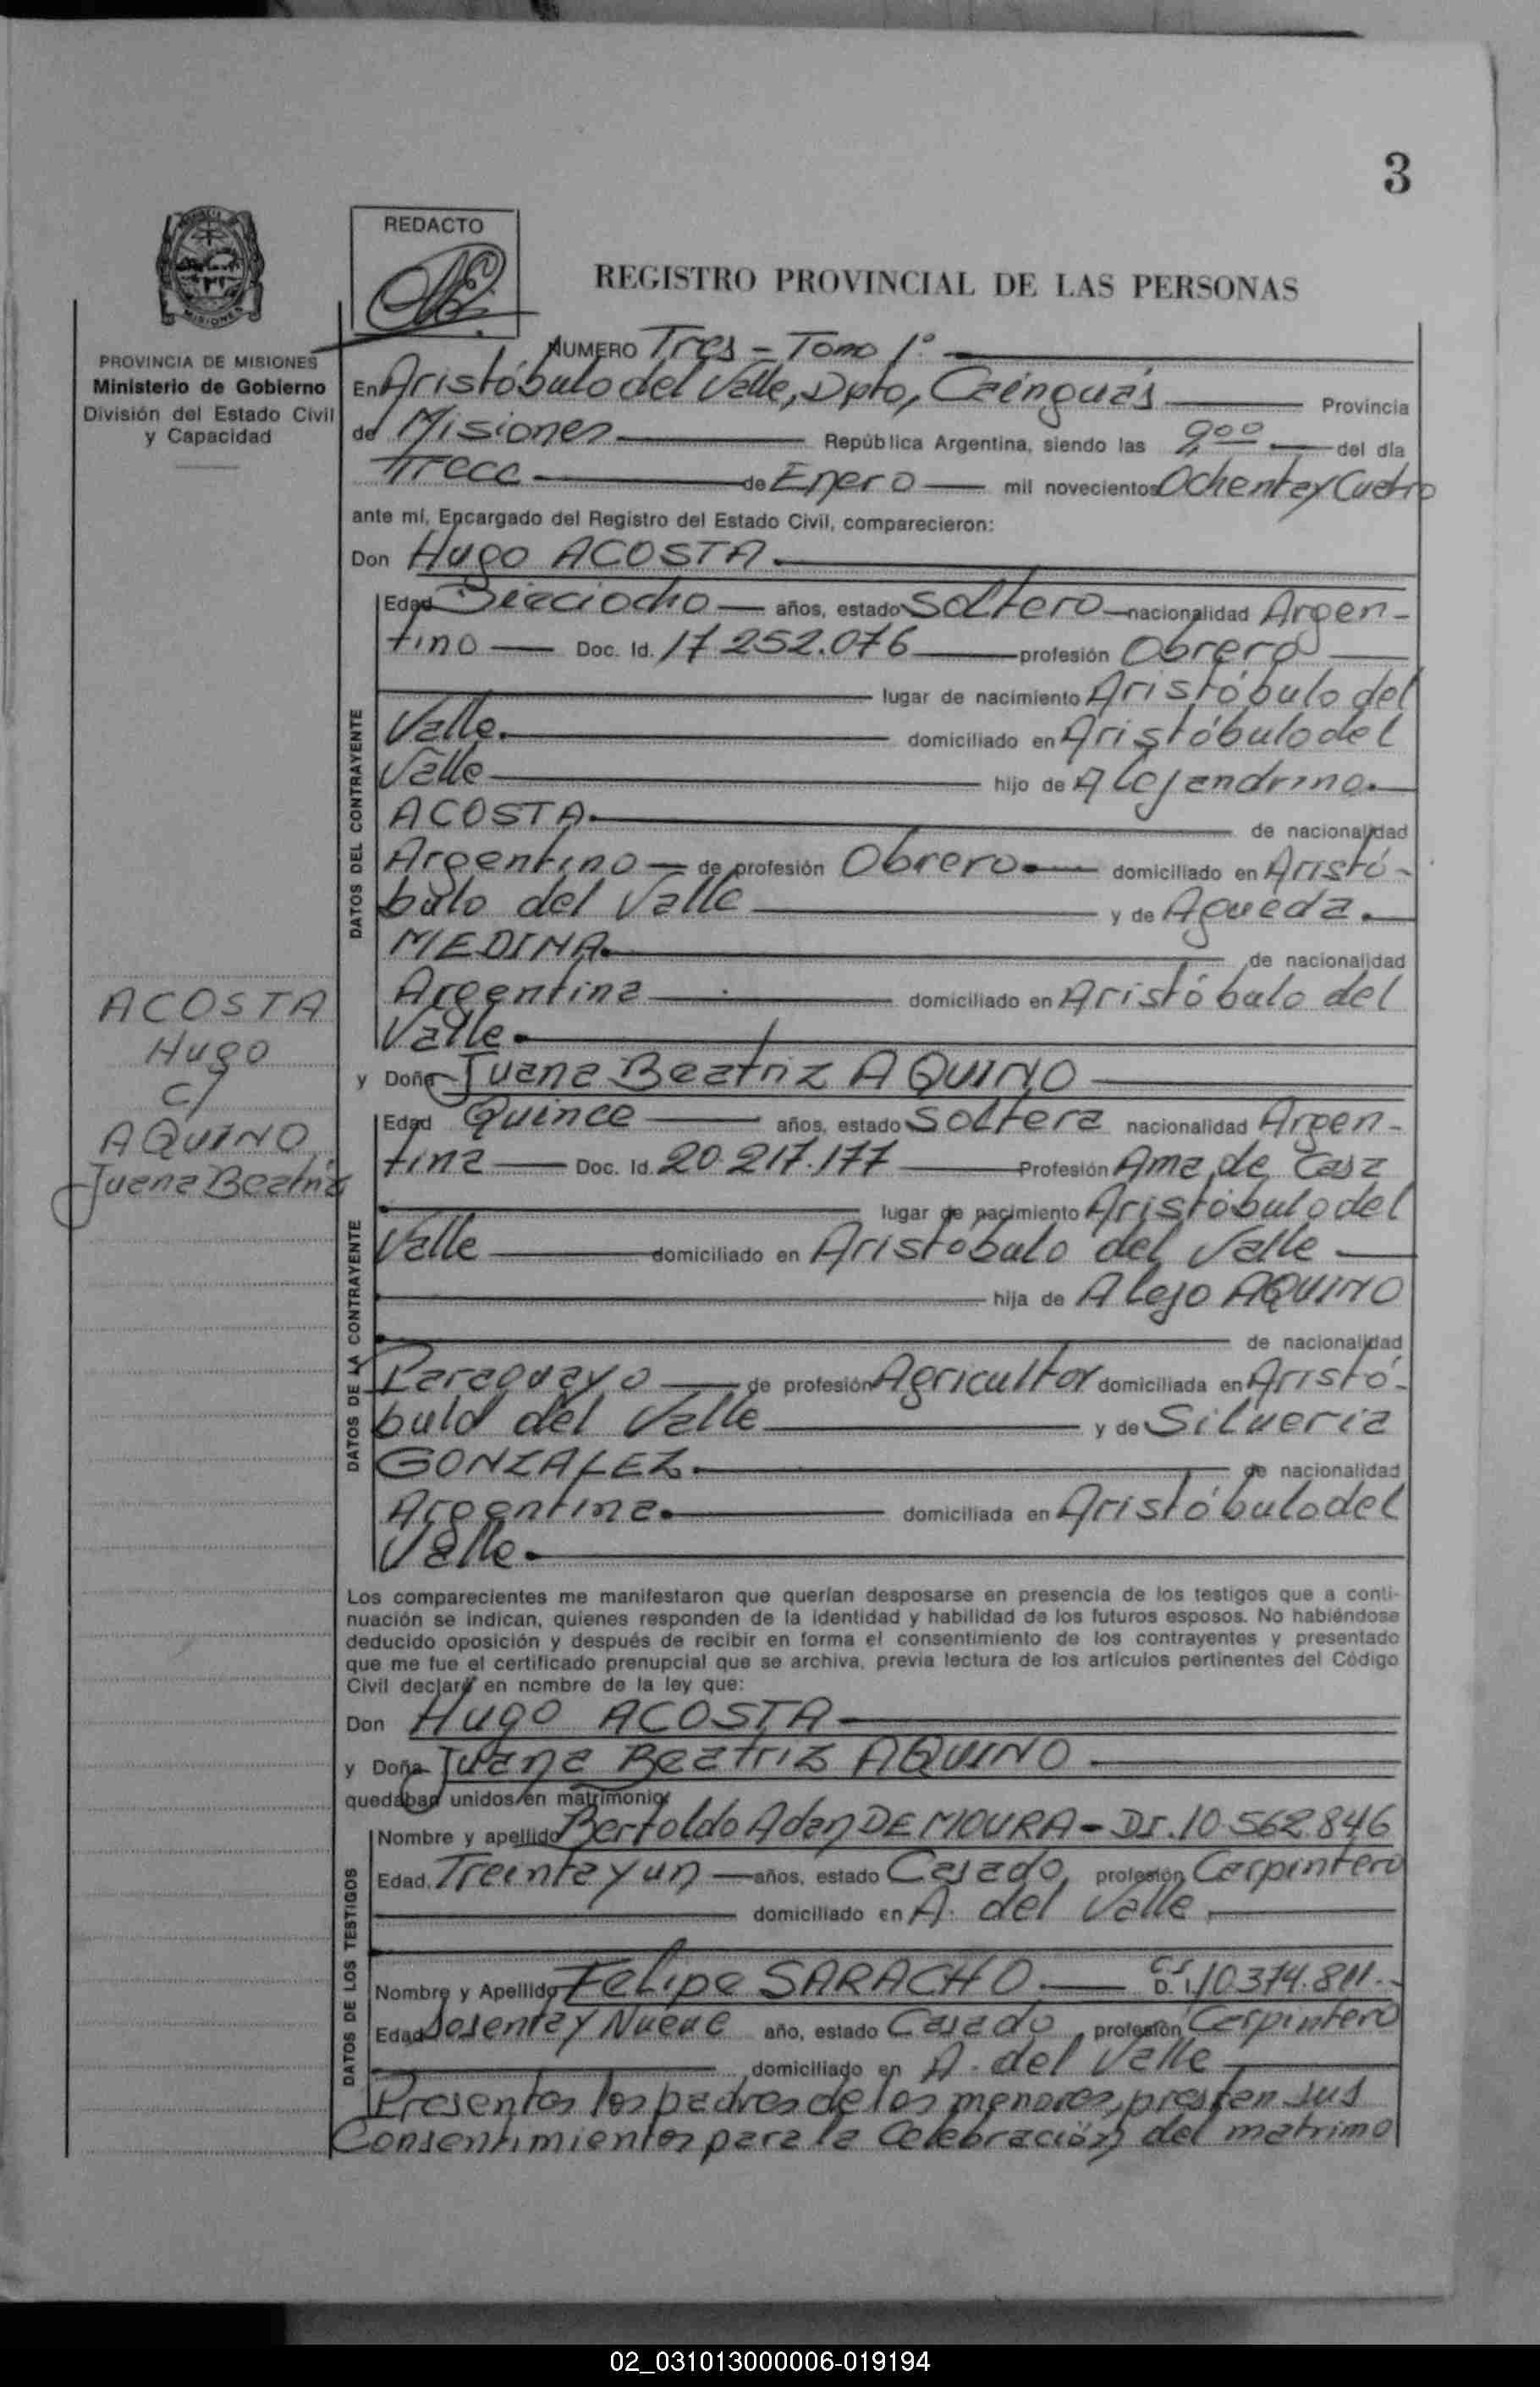 3
REDACTO
REGISTRO PROVINCIAL DE LAS PERSONAS
MISIONES
PROVINCIA DE MISIONES
Ministerio de Gobierno
División del Estado Civil
y Capacidad
NUMERO Tres - Tomo 1º
En Aristóbulo del Valle, Dpto, Cainguás Provincia
de Misiones República Argentina, siendo las 9,00 del día
Trece de Enero mil novecientos Ochenta y Cuatro
ante mí, Encargado del Registro del Estado Civil, comparecieron:
Don Hugo ACOSTA
Edad Dieciocho años, estado Soltero nacionalidad Argen-
tino Doc. Id. 17.252.076 profesión Obrero
lugar de nacimiento Aristóbulo del
Valle. domiciliado en Aristóbulo del
Valle hijo de Alejandrino
ACOSTA. de nacionalidad
Argentino de profesión Obrero domiciliado en Aristó-
bulo del Valle y de Agueda.
MEDINA. de nacionalidad
Argentina domiciliado en Aristóbulo del
Valle.
y Doña Juana Beatriz AQUINO
Edad Quince años, estado Soltera nacionalidad Argen-
tina Doc. Id. 20.217.177 Profesión Ama de Casa
lugar de nacimiento Aristóbulo del
Valle domiciliado en Aristóbulo del Valle
hija de Alejo AQUINO
de nacionalidad
Paraguayo de profesión Agricultor domiciliada en Aristó-
bulo del Valle y de Silveria
GONZALEZ. de nacionalidad
Argentina. domiciliada en Aristóbulo del
Valle.
DATOS DEL CONTRAYENTE
DATOS DE LA CONTRAYENTE
ACOSTA
Hugo
C/
AQUINO,
Juana Beatriz
Los comparecientes me manifestaron que querían desposarse en presencia de los testigos que a conti-
nuación se indican, quienes responden de la identidad y habilidad de los futuros esposos. No habiéndose
deducido oposición y después de recibir en forma el consentimiento de los contrayentes y presentado
que me fue el certificado prenupcial que se archiva, previa lectura de los artículos pertinentes del Código
Civil declaré en nombre de la ley que:
Don Hugo ACOSTA
y Doña Juana Beatriz AQUINO
quedaban unidos en matrimonio
Nombre y apellido Bertoldo Adan DE MOURA - DI. 10.562.846
Edad Treinta y un años, estado Casado, profesión Carpintero
domiciliado en A. del Valle
Nombre y Apellido Felipe SARACHO D. I. 10.374.811.-
Edad Sesenta y Nueve año, estado Casado, profesión Carpintero
domiciliado en A. del Valle
DATOS DE LOS TESTIGOS
Presentes los padres de los menores, prestan sus
Consentimientos para la Celebración del matrimo
02_031013000006-019194